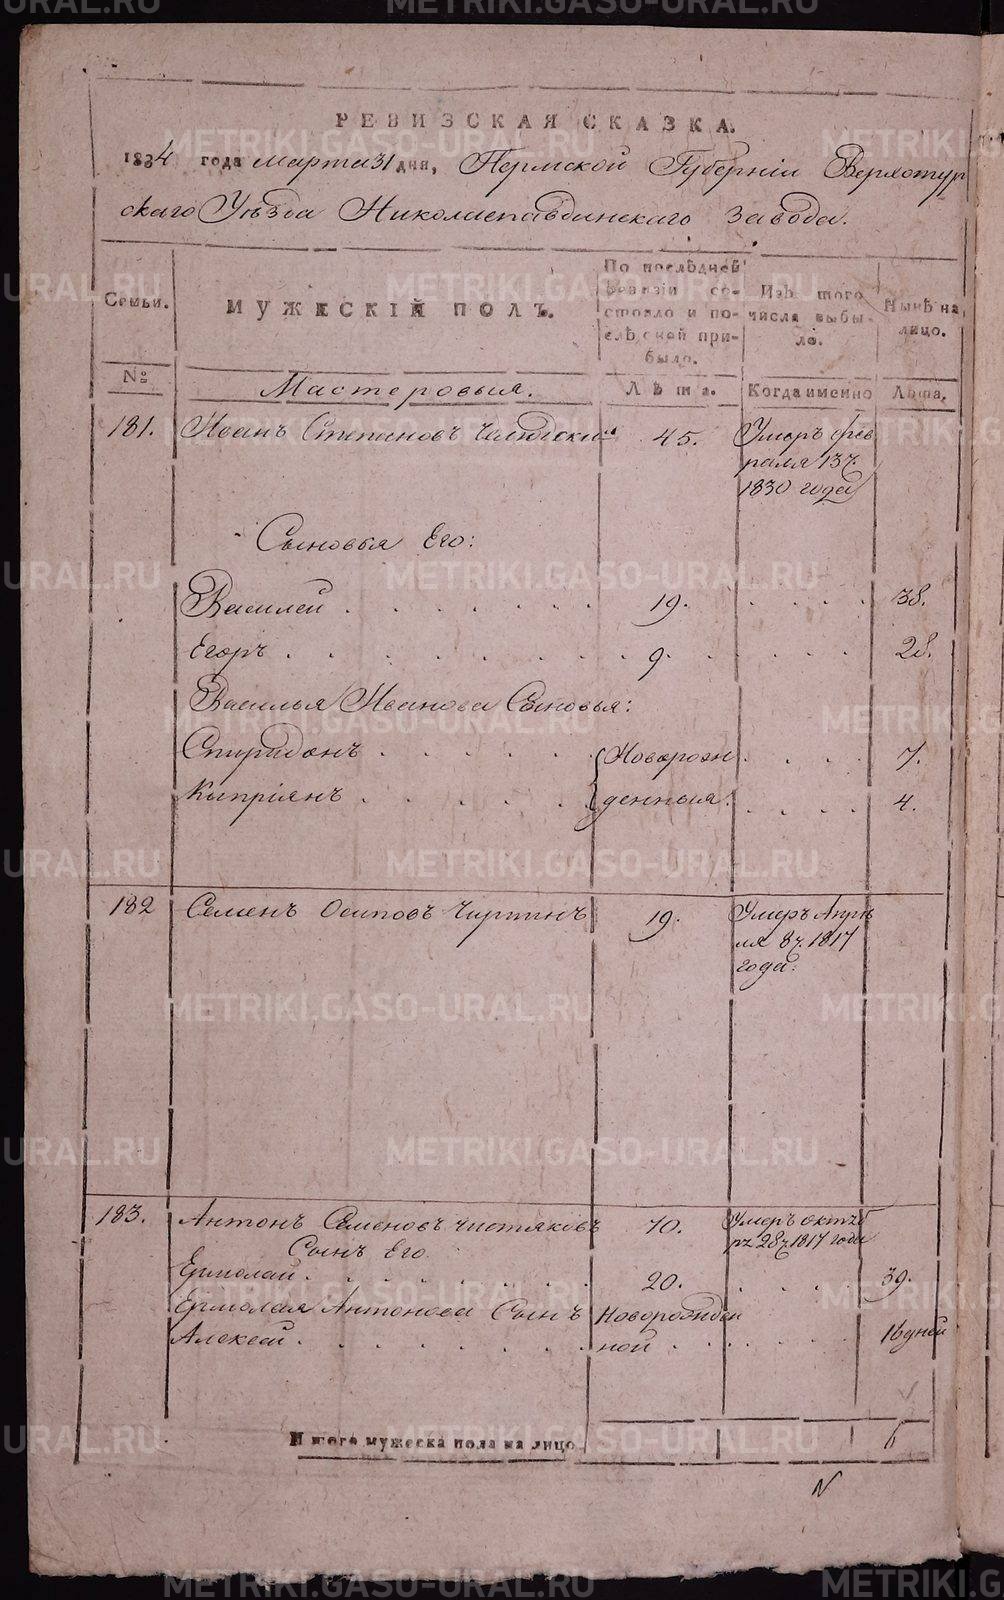 РЕВИЗСКАЯ СКАЗКА.
1834 года Марта 31 дня, Пермской Губернiи Верхотур
скаго Уѣзда Николаепавдинскаго завода.
Семьи.
МУЖЕСКIЙ ПОЛЪ.
По послѣдней ревизiи состояло и послѣ оной прибыло.
Изъ того числа выбыло.
Нынѣ на лицо.
№
Мастеровыя.
Лѣта.
Когда именно
Лѣта.
181. Иванъ Степановъ 45. Умеръ фев
раля 13ч.
1830 года
Сыновья Его:
Василей 19. 38.
Егоръ 9. 28.
Василья Иванова Сыновья:
Спиридонъ Новорож 7.
Кипрiянъ денныя. 4.
182 Семенъ Осиповъ Чиртинъ 19. Умеръ Апрѣ
ля 8ч. 1817
года.
183. Антонъ Семеновъ Чистяковъ 70. Умеръ октяб
ря 28ч 1817 года
Сынъ Его
Ермолай 20. 39.
Ермолая Антонова Сынъ Новорожден
Алексей ной 16 дней
Итого мужеска пола на лицо. 6
METRIKI.GASO-URAL.RU